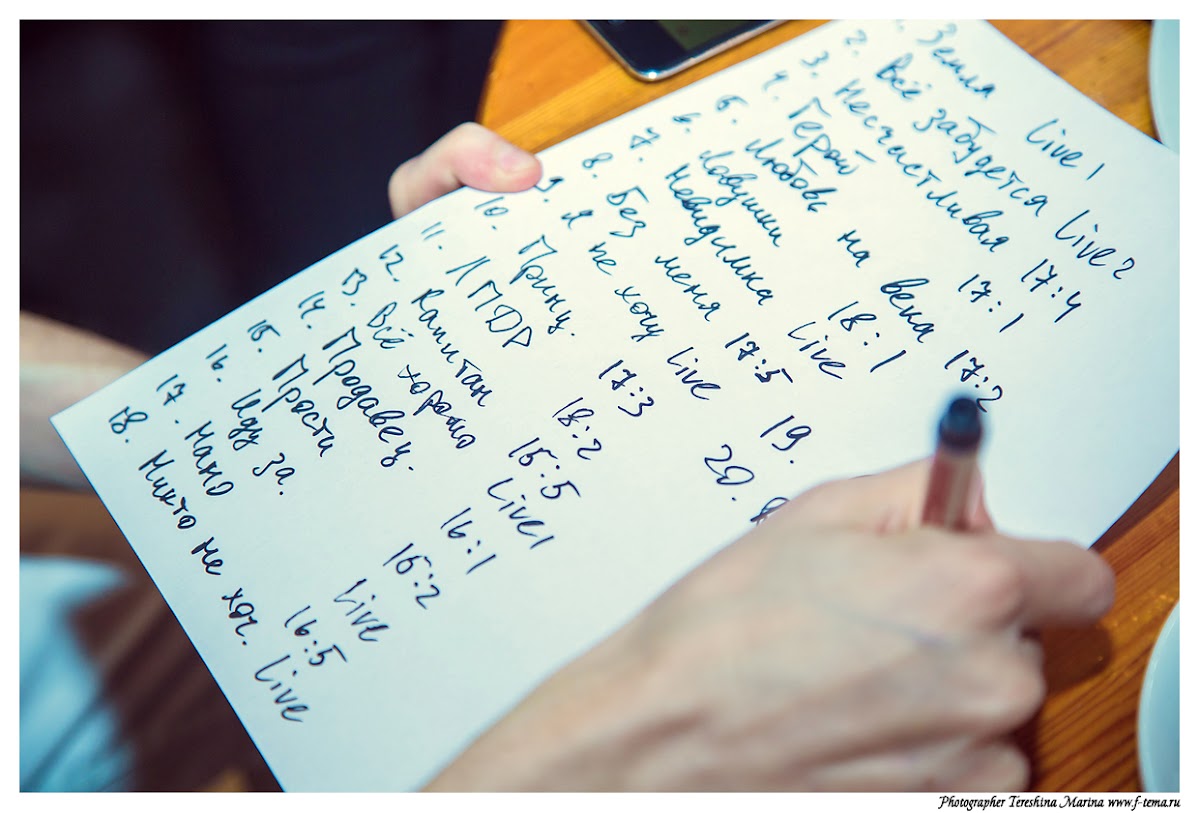 1. Земля Live 1
2. Всё забудется Live 2
3. Несчастливая 17:4
4. Герой 17:1
5. Любовь на века 17:2
6. Ловушки 18:1
7. Невидимка Live
8. Без меня 17:5
9. Я не хочу Live
10. Принц. 17:3
11. ЛПДР 18:2
12. Капитан 15:5
13. Всё хорошо Live1
14. Продавец. 16:1
15. Прости 15:2
16. Иду за. Live
17. 16:5
18. Никто не хоч. Live
19.
20.
Photographer Tereshina Marina www.f-tema.ru